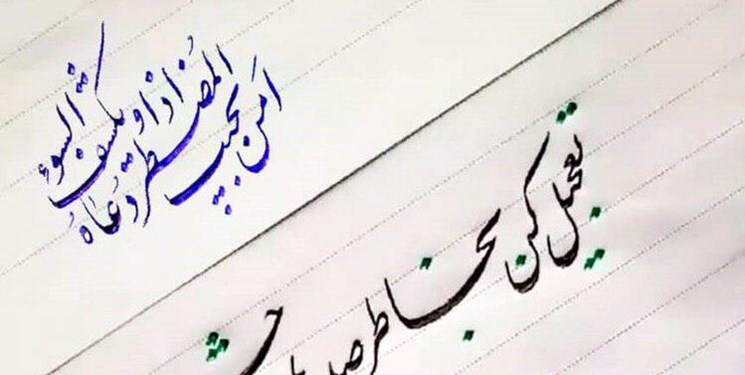 اَمن یجیب المضطر اذا دَعاهُ و یکشف السوء
تعجیل کن بخاطر صدها